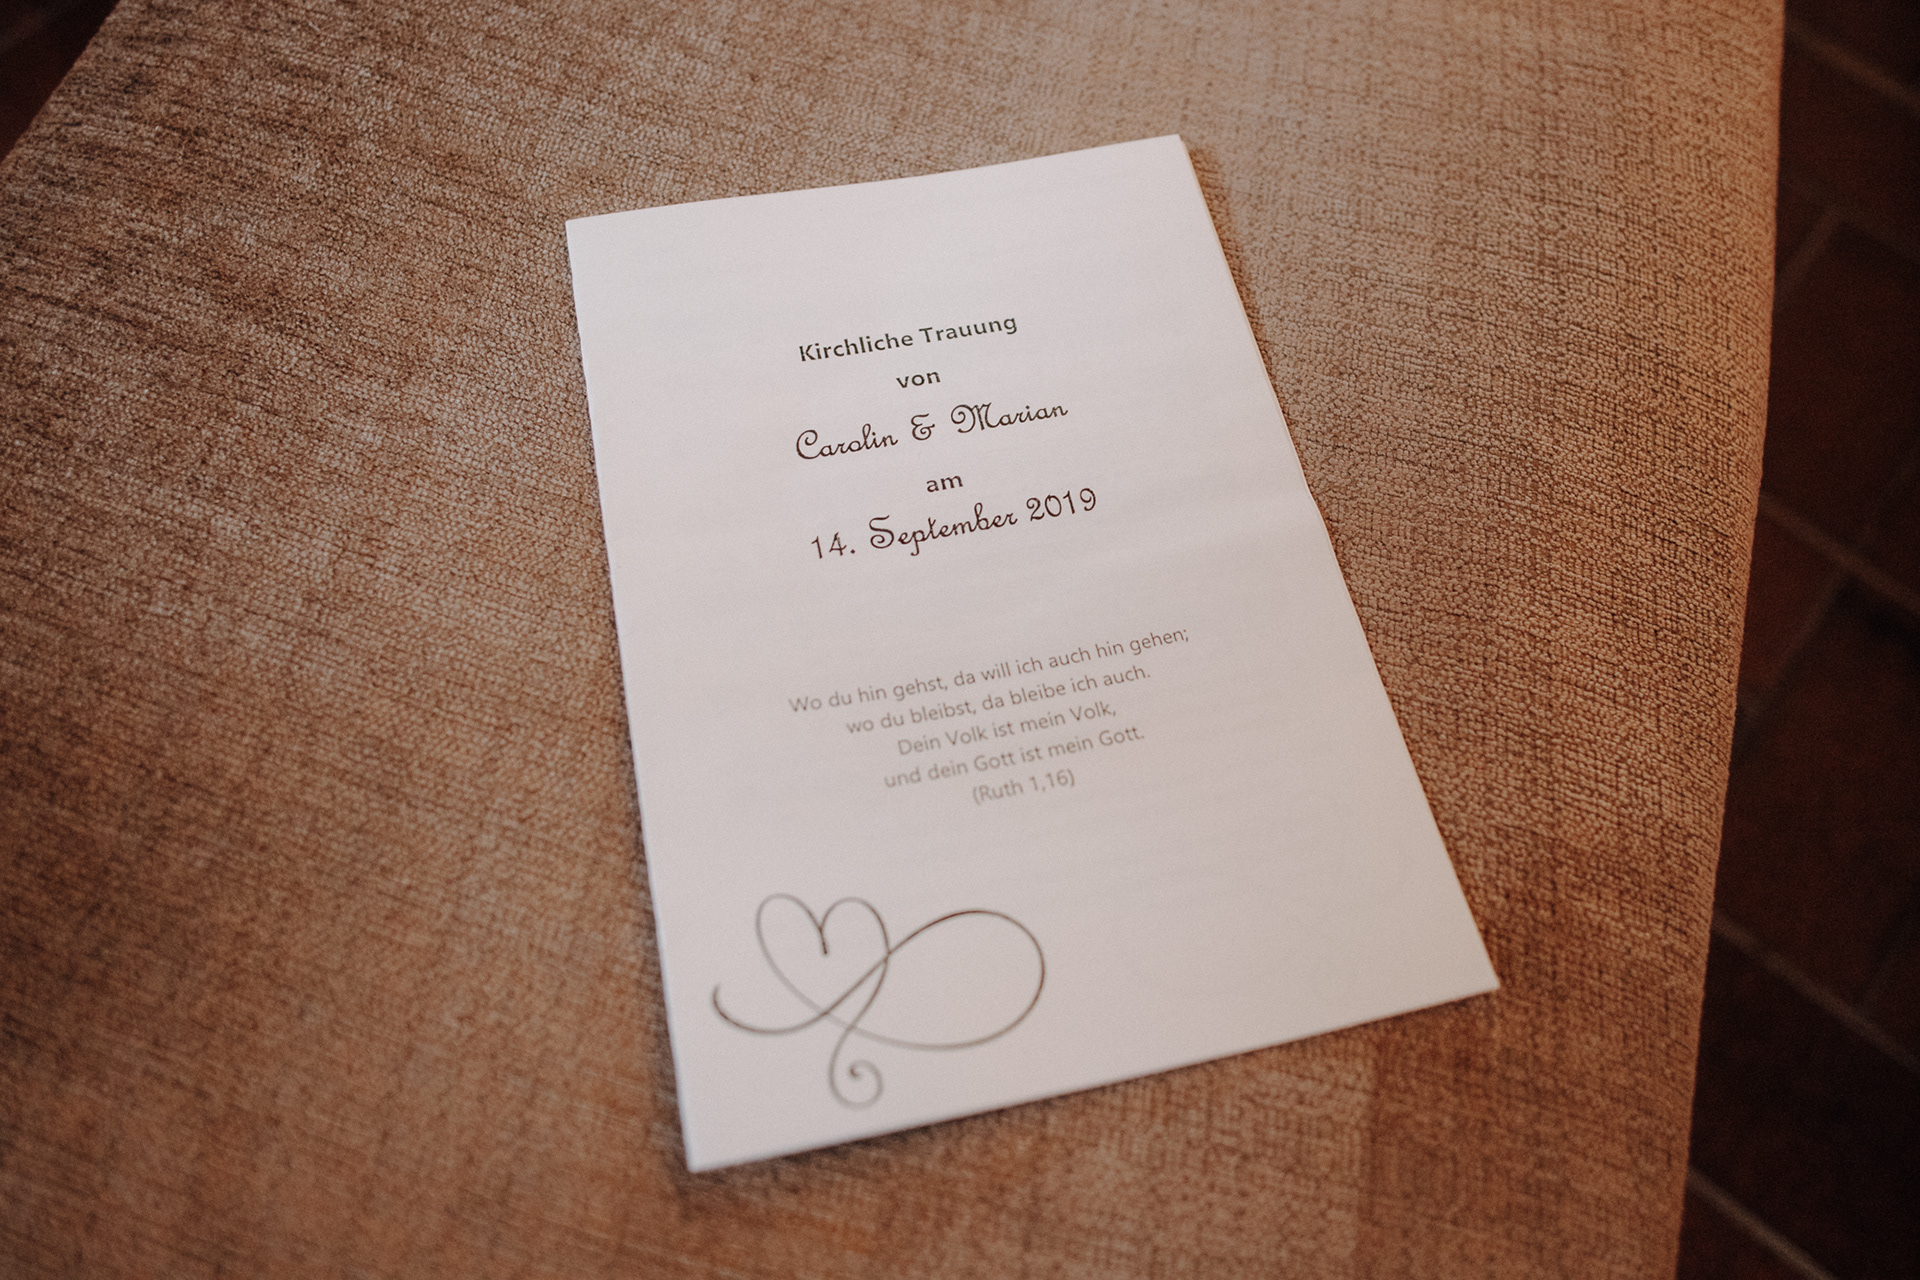 Kirchliche Trauung
von
Carolin & Marian
am
14. September 2019
Wo du hin gehst, da will ich auch hin gehen;
wo du bleibst, da bleibe ich auch.
Dein Volk ist mein Volk,
und dein Gott ist mein Gott.
(Ruth 1,16)